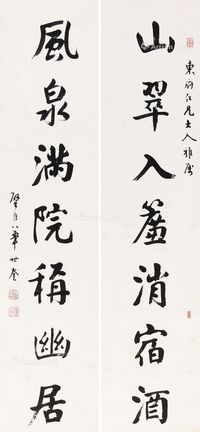 東府仁兄大人雅屬
山翠入簾消宿酒
風泉滿院稱幽居
華世奎